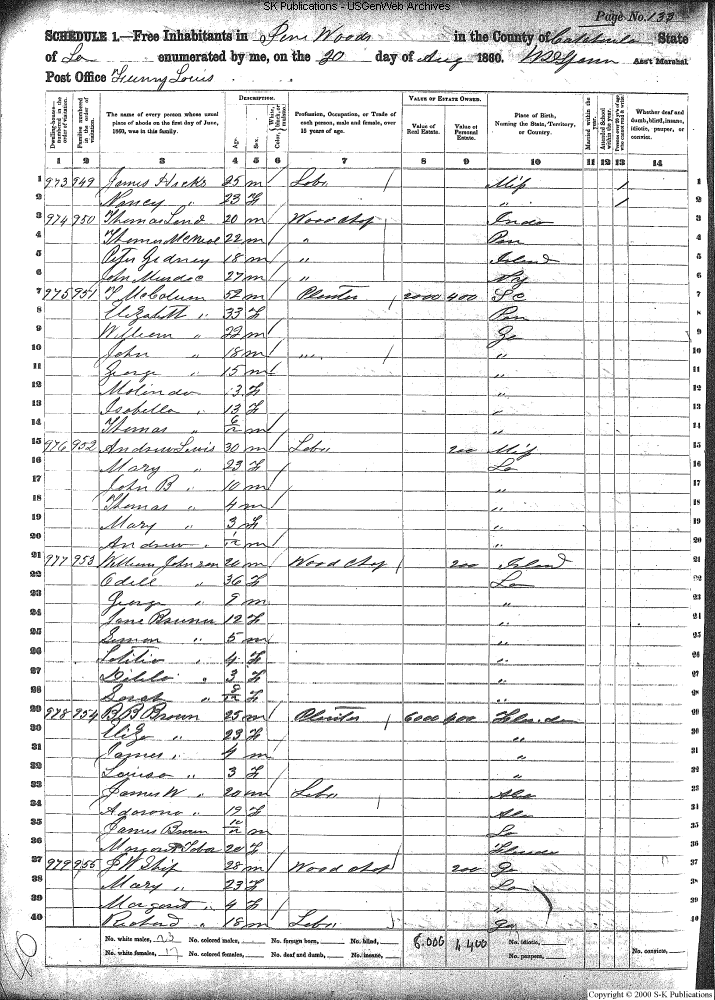 SK Publications - USGenWeb Archives
Page No. 132
SCHEDULE 1.—Free Inhabitants in Pine Woods in the County of Catahoula State
of La enumerated by me, on the 20 day of Aug 1860. Ass't Marshal
Post Office Funny Louis
DESCRIPTION. VALUE OF ESTATE OWNED.
Dwelling-houses numbered in the order of visitation. Families numbered in the order of visitation. The name of every person whose usual place of abode on the first day of June, 1860, was in this family. Age. Sex. Color, White, black, or mulatto. Profession, Occupation, or Trade of each person, male and female, over 15 years of age. Value of Real Estate. Value of Personal Estate. Place of Birth, Naming the State, Territory, or Country. Married within the year. Attended School within the year. Persons over 20 y'rs of age who cannot read & write. Whether deaf and dumb, blind, insane, idiotic, pauper, or convict.
1 2 3 4 5 6 7 8 9 10 11 12 13 14
1 973 949 James Hicks 25 m Labr Miss / 1
2 Nancy " 23 f " / 2
3 974 950 Thomas 20 m Wood chop 3
4 Thomas 22 m " 4
5 Peter Gidney 18 m " 5
6 John 27 m " 6
7 975 951 52 m Planter 2000 400 S C 7
8 Elizabeth " 33 f 8
9 William " 22 m Ga 9
10 John " 18 m " " 10
11 George " 15 m " 11
12 Molinda 3 f " 12
13 Isabella " 13 f " 13
14 Thomas " 6/12 m " 14
15 976 952 Andrew Lewis 30 m Labr 200 Miss 15
16 Mary " 23 f La 16
17 John B " 10 m " 17
18 Thomas " 4 m " 18
19 Mary " 3 f " 19
20 Andrew " 1/12 m " 20
21 977 953 William Johnson 20 m Wood chop 200 21
22 Odell " 36 f La 22
23 George " 9 m " 23
24 Jane 12 f " 24
25 Simon " 5 m " 25
26 " 4 f " 26
27 " 3 f " 27
28 Sarah " 8/12 f " 28
29 978 954 B B Brown 25 m Planter 6000 400 Florida 29
30 Eliza " 23 f " 30
31 James " 4 m " 31
32 Louisa " 3 f " 32
33 James W " 20 m Labr Ala 33
34 " 19 f Ala 34
35 James Brown 10/12 m La 35
36 Margaret 20 f Florida 36
37 979 955 J W Ship 28 m Wood chop 200 Ga 37
38 Mary " 23 f La 38
39 Margaret " 4 f " 39
40 Richard " 18 m Labr Ga 40
No. white males, 23 No. colored males, No. foreign born, No. blind, 8.000 1,400 No. idiotic, No. convicts,
No. white females, 17 No. colored females, No. deaf and dumb, No. insane, No. paupers,
40
Copyright © 2000 S-K Publications